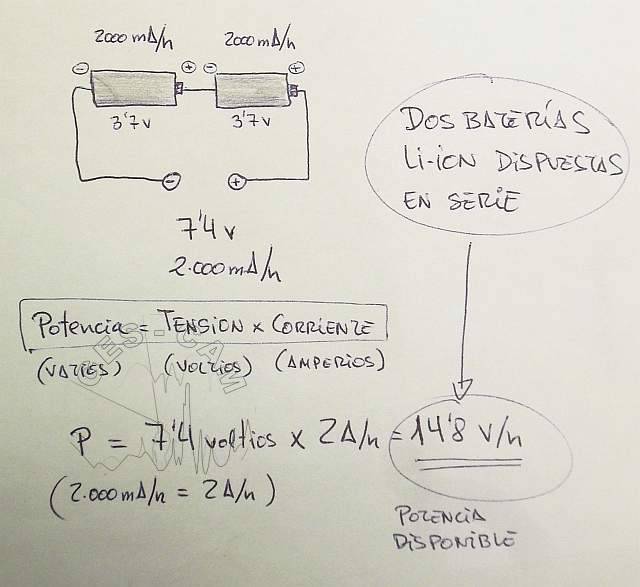 2000 mA/h 2000 mA/h
- + - +
3'7 v 3'7 v
- +
7'4 v
2.000 mA/h
DOS BATERÍAS
Li-iON DISPUESTAS
EN SERIE
Potencia = TENSION x CORRIENTE
(VATIOS) (VOLTIOS) (AMPERIOS)
P = 7'4 voltios x 2A/h = 14'8 V/h
(2.000 mA/h = 2A/h)
POTENCIA
DISPONIBLE